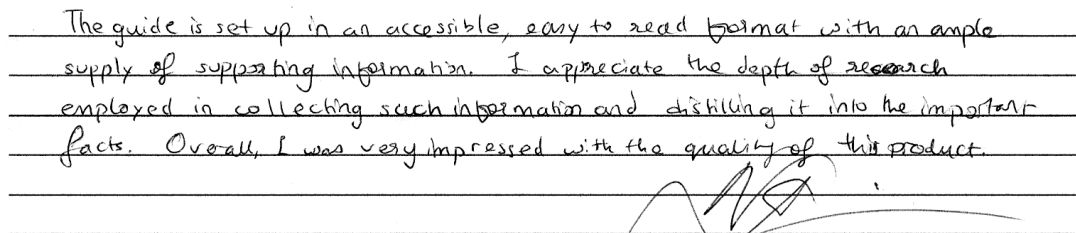 The guide is set up in an accessible, easy to read format with an ample
supply of supporting information. I appreciate the depth of research
employed in collecting such information and distilling it into the important
facts. Overall, I was very impressed with the quality of this product.